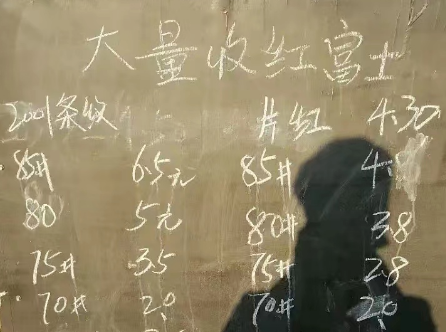 大量收红富士
2001条纹 片红 4.30
85# 6.5元 85# 4.
80 5元 80# 3.8
75# 3.5 75# 2.8
70# 2.0 70# 2.0